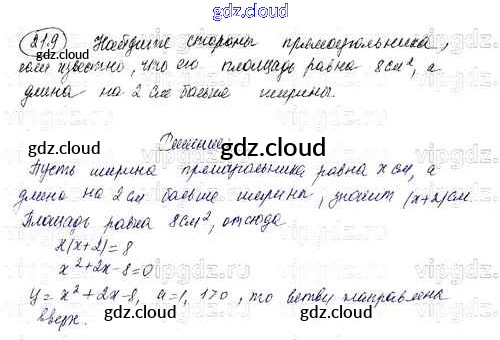 gdz.cloud
21.9 Найдите стороны прямоугольника,
gdz.cloud
если известно, что его площадь равна 8см², а
длина на 2 см больше ширины.
Решение:
gdz.cloud
Пусть ширина прямоугольника равна x см, а
длина на 2 см больше ширины, значит (x+2)см.
Площадь равна 8см², отсюда
x(x+2)=8
gdz.cloud
x²+2x-8=0
y=x²+2x-8, a=1, 1>0, то ветви направлена
вверх.
gdz.cloud
gdz.cloud
vipgdz.cloud